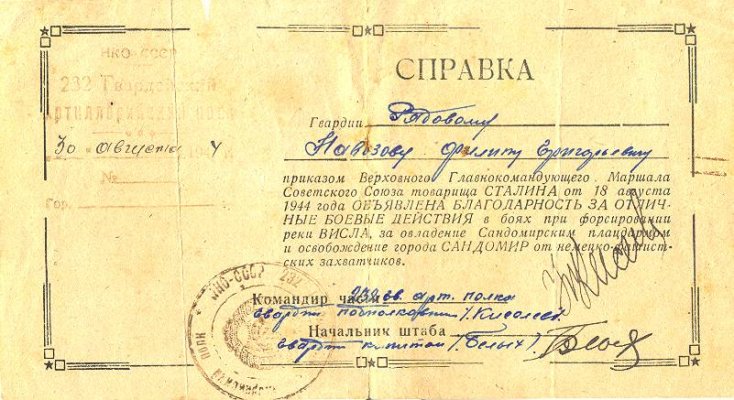 НКО-СССР
232 Гвардейский
Артиллерийский полк
30 августа 4
№
Гор.
СПРАВКА
Гвардии Рядовому
Навозову Филипу Григорьевичу
приказом Верховного Главнокомандующего Маршала
Советского Союза товарища СТАЛИНА от 18 августа
1944 года ОБЪЯВЛЕНА БЛАГОДАРНОСТЬ ЗА ОТЛИЧ-
НЫЕ БОЕВЫЕ ДЕЙСТВИЯ в боях при форсировании
реки ВИСЛА, за овладение Сандомирским плацдармом
и освобождение города САНДОМИР от немецко-фашист-
ских захватчиков.
Командир части 232 гв. арт. полка
гвардии подполковник
Начальник штаба
гвардии капитан /Белых/
НКО-СССР 232
полк